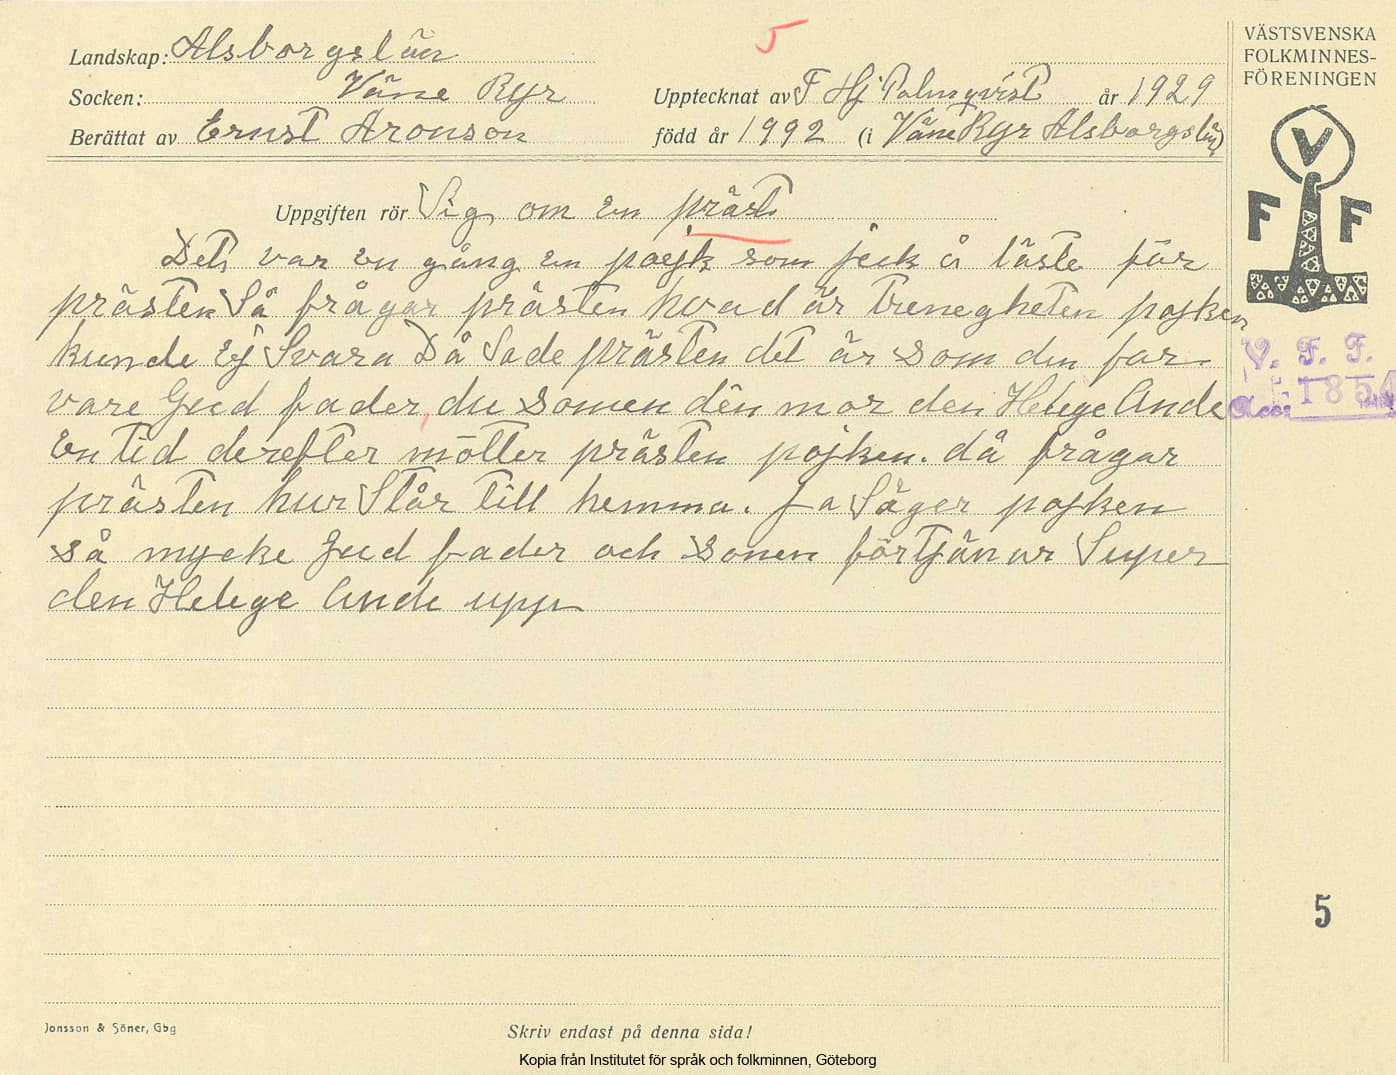 5
VÄSTSVENSKA
FOLKMINNES-
FÖRENINGEN
Landskap: Alsborgslän
Socken: Väne Ryr
Upptecknat av F Hj Palmqvist år 1929
Berättat av Ernst Aronson
född år 1992 (i Väne Ryr Alsborgslän)
V
F F
Uppgiften rör Sig om en präst
Det var en gång en pojk som jeck å läste för
prästen Så frågar prästen hvad är trenegheten pojken
kunde Ej Svara Då Sade prästen det är som den far
vare Gud fader, du Sonen den mor den Helege Ande
En tid derefter mötter prästen pojken. då frågar
prästen hur Står till hemma. Ja Säger pojken
så mycke Gud fader och Sonen förtjänar Super
den Helege Ande upp
V. F. F.
Acc. 1854
5
Jonsson & Söner, Gbg
Skriv endast på denna sida!
Kopia från Institutet för språk och folkminnen, Göteborg